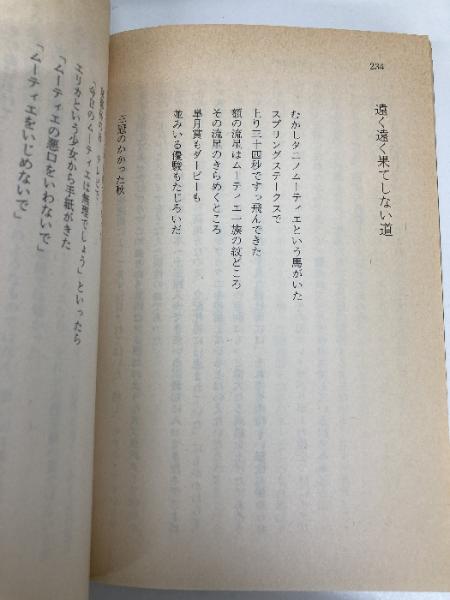 234
遠く遠く果てしない道
むかしタニノムーティエという馬がいた
スプリングステークスで
上り三十四秒ですっ飛んできた
額の流星はムーティエ一族の紋どころ
その流星のきらめくところ
皐月賞もダービーも
並みいる優駿もたじろいだ
三冠のかかった秋
「今日のムーティエは無理でしょう」といったら
エリカという少女から手紙がきた
「ムーティエの悪口をいわないで」
「ムーティエをいじめないで」